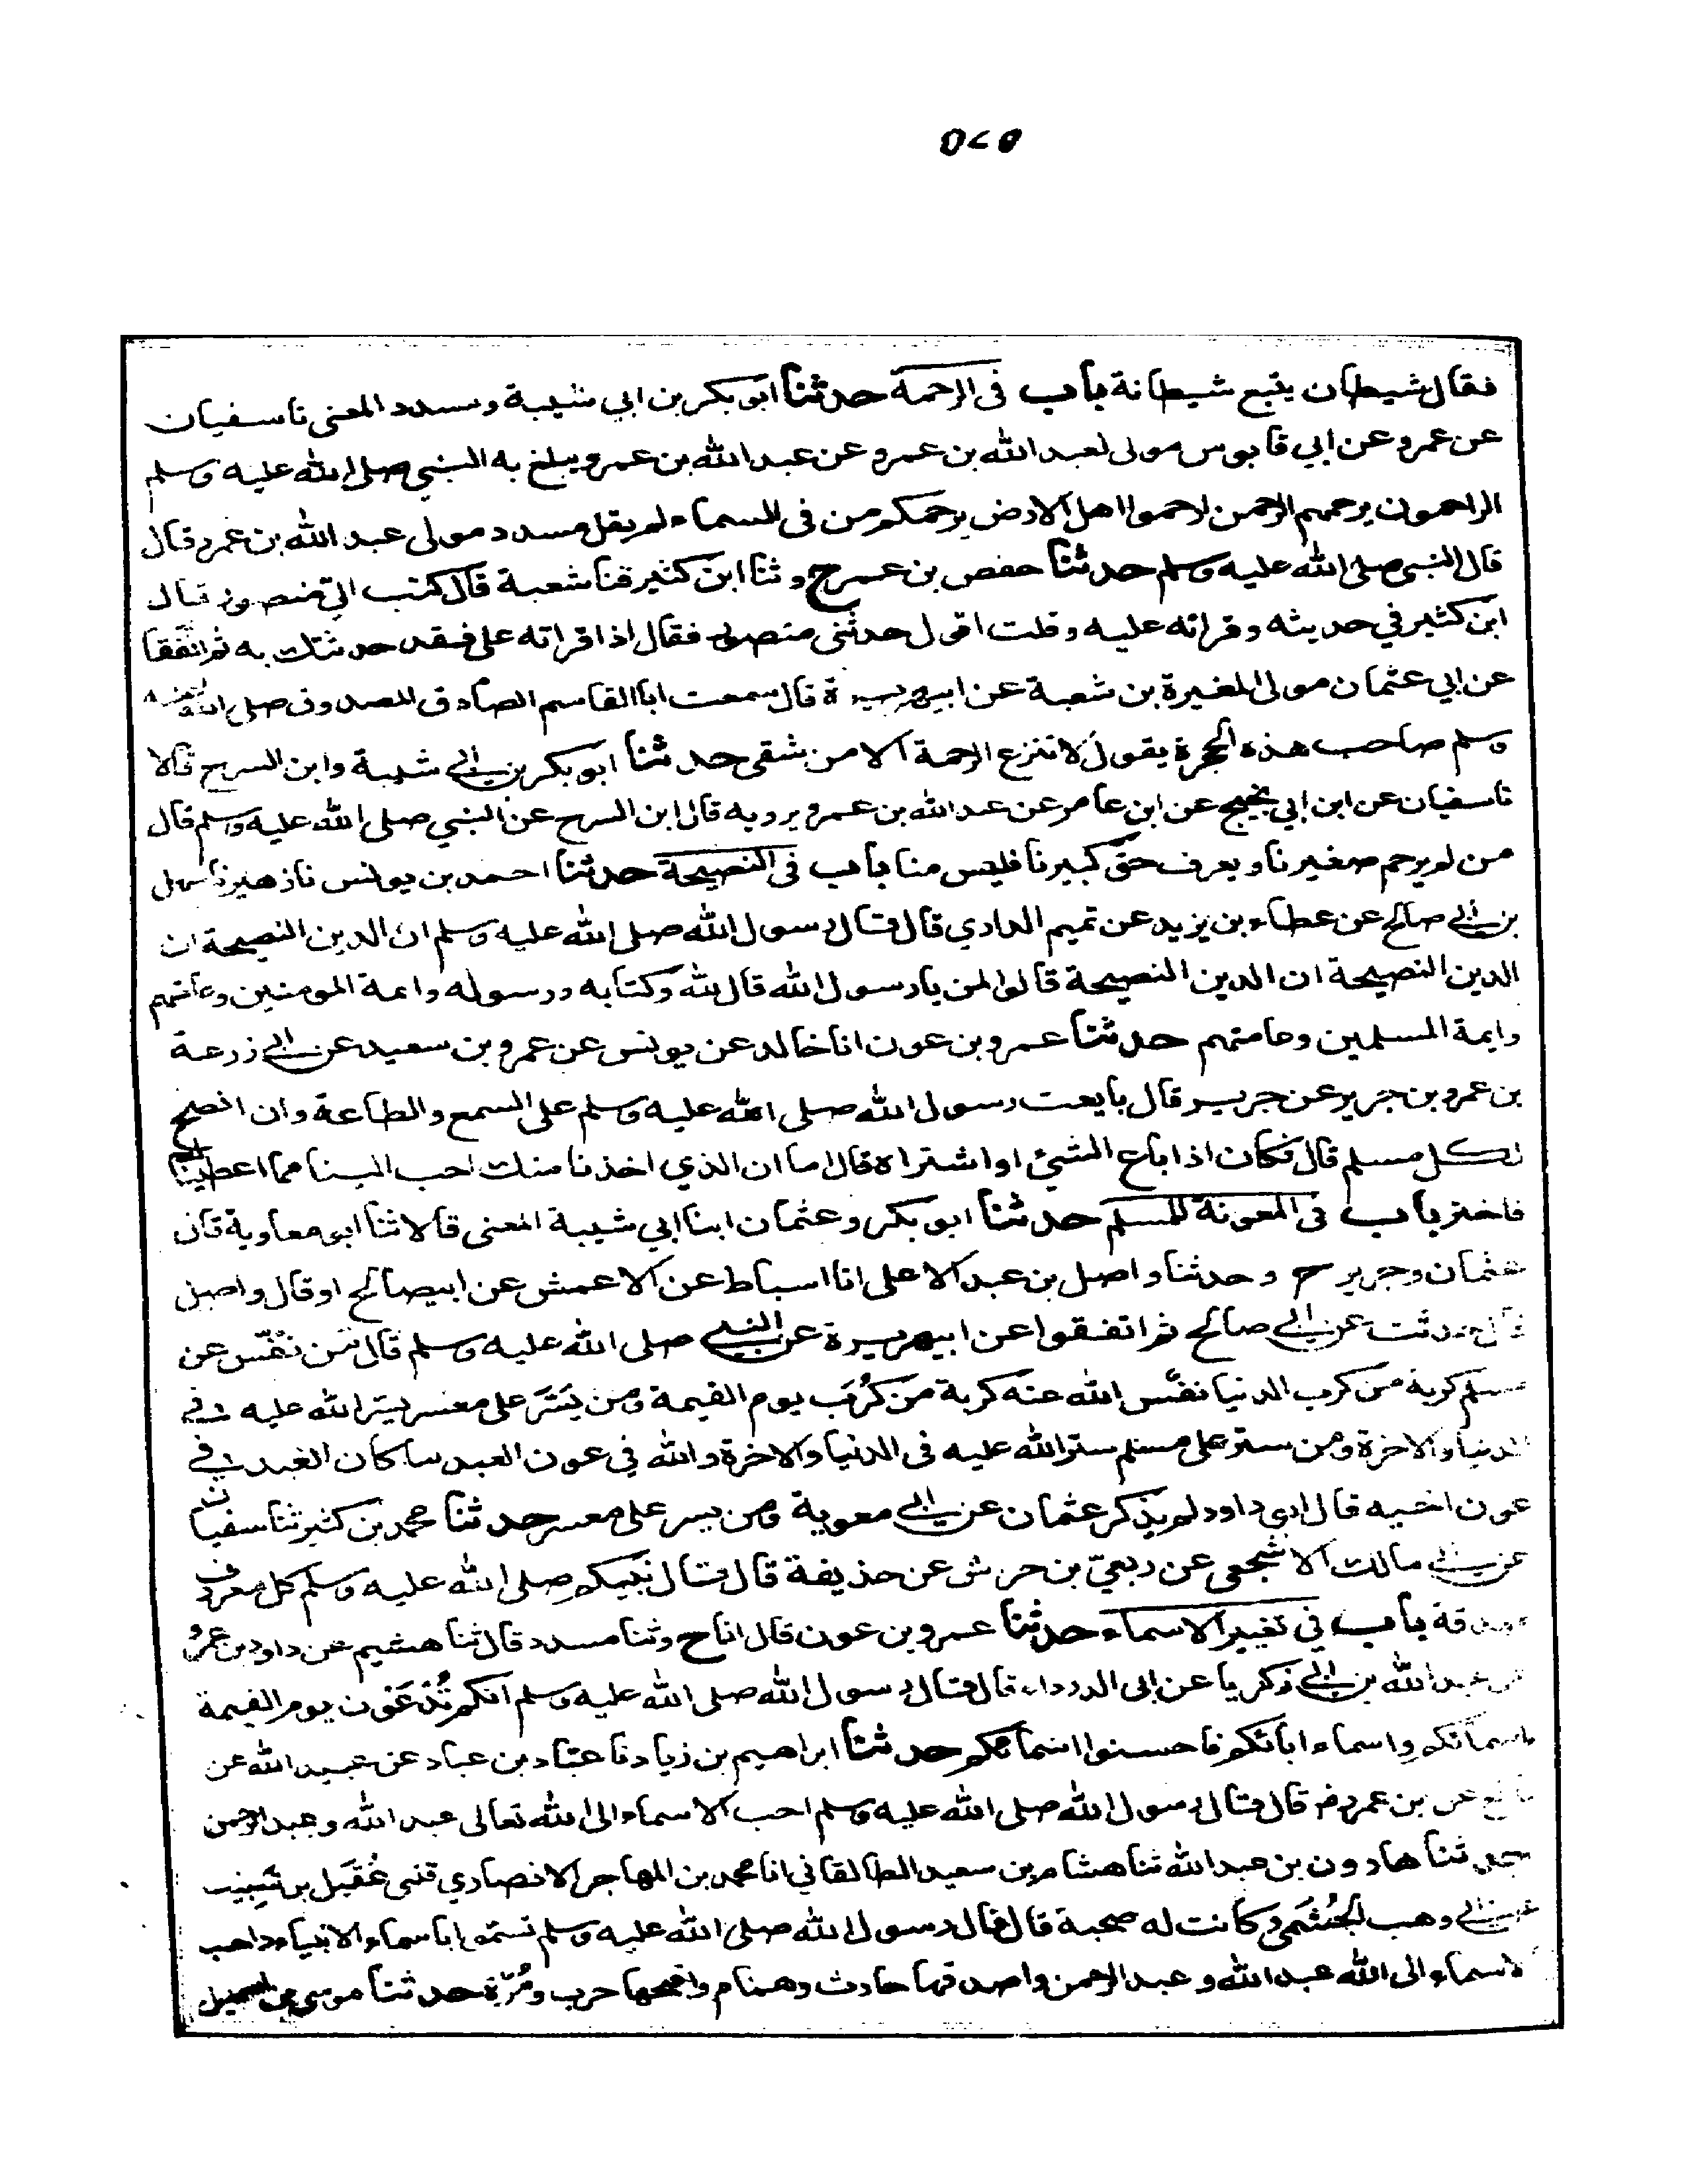 ٥٧٥
فقال شيطان يتبع شيطانة باب في الرحمة حدثنا ابو بكر بن ابي شيبة ومسدد المعنى نا سفيان
عن عمرو عن ابي قابوس مولى لعبد الله بن عمرو عن عبد الله بن عمرو يبلغ به النبي صلى الله عليه وسلم
الراحمون يرحمهم الرحمن ارحموا اهل الارض يرحمكم من في السماء لم يقل مسدد مولى عبد الله بن عمرو قال
قال النبي صلى الله عليه وسلم حدثنا حفص بن عمر ح وثنا ابن كثير قنا شعبة قال كتب الي منصور قال
ابن كثير في حديثه وقراته عليه وقلت اقول حدثني منصور فقال اذا قراته علي فقد حدثتك به ثم اتفقا
عن ابي عثمان مولى المغيرة بن شعبة عن ابي هريرة قال سمعت ابا القاسم الصادق المصدوق صلى الله عليه
وسلم صاحب هذه الحجرة يقول لا تنزع الرحمة الا من شقي حدثنا ابو بكر بن ابي شيبة وابن السرح قالا
نا سفيان عن ابن ابي نجيح عن ابن عامر عن عبد الله بن عمرو يرويه قال ابن السرح عن النبي صلى الله عليه وسلم قال
من لم يرحم صغيرنا ويعرف حق كبيرنا فليس منا باب في النصيحة حدثنا احمد بن يونس نا زهير نا سهيل
بن ابي صالح عن عطاء بن يزيد عن تميم الداري قال قال رسول الله صلى الله عليه وسلم ان الدين النصيحة ان
الدين النصيحة ان الدين النصيحة قالوا لمن يا رسول الله قال لله وكتابه ورسوله وائمة المومنين وعامتهم
وايمة المسلمين وعامتهم حدثنا عمرو بن عون انا خالد عن يونس عن عمرو بن سعيد عن ابي زرعة
بن عمرو بن جرير عن جرير قال بايعت رسول الله صلى الله عليه وسلم على السمع والطاعة وان انصح
لكل مسلم قال فكان اذا باع الشئ او اشتراه قال اما ان الذي اخذنا منك احب الينا مما اعطيناك
فاختر باب في المعونة للمسلم حدثنا ابو بكر وعثمان ابنا ابي شيبة المعنى قالا ثنا ابو معاوية قال
عثمان وجرير ح وحدثنا واصل بن عبد الاعلى انا اسباط عن الاعمش عن ابي صالح او قال واصل
قال حدثت عن ابي صالح ثم اتفقوا عن ابي هريرة عن النبي صلى الله عليه وسلم قال من نفّس عن
مسلم كربة من كرب الدنيا نفّس الله عنه كربة من كُرَب يوم القيمة ومن يَسَّرَ على معسر يسّر الله عليه في
الدنيا والاخرة ومن ستر على مسلم ستر الله عليه في الدنيا والاخرة والله في عون العبد ما كان العبد في
عون اخيه قال ابو داود لم يذكر عثمان عن ابي معوية ومن يسر على معسر حدثنا محمد بن كثير ثنا سفيان
عن ابي مالك الاشجعي عن ربعيّ بن حرش عن حذيفة قال قال نبيكم صلى الله عليه وسلم كل معروف
صدقة باب في تغيير الاسماء حدثنا عمرو بن عون قال انا ح وثنا مسدد قال ثنا هشيم عن داود بن عمرو
عن عبد الله بن ابي زكريا عن ابي الدرداء قال قال رسول الله صلى الله عليه وسلم انكم تُدْعَوْن يوم القيمة
باسمائكم واسماء ابائكم فاحسنوا اسمائكم حدثنا ابراهيم بن زياد نا عبّاد بن عباد عن عبيد الله عن
نافع عن بن عمر رض قال قال رسول الله صلى الله عليه وسلم احب الاسماء الى الله تعالى عبد الله وعبد الرحمن
حدثنا هارون بن عبد الله ثنا هشام بن سعيد الطالقاني انا محمد بن المهاجر الانصاري قثنى عُقَيل بن شبيب
عن ابي وهب الجُشَمي وكانت له صحبة قال قال رسول الله صلى الله عليه وسلم تسموا باسماء الانبياء واحب
الاسماء الى الله عبد الله وعبد الرحمن واصدقها حارث وهمام واقبحها حرب ومُرّة حدثنا موسى بن اسمعيل